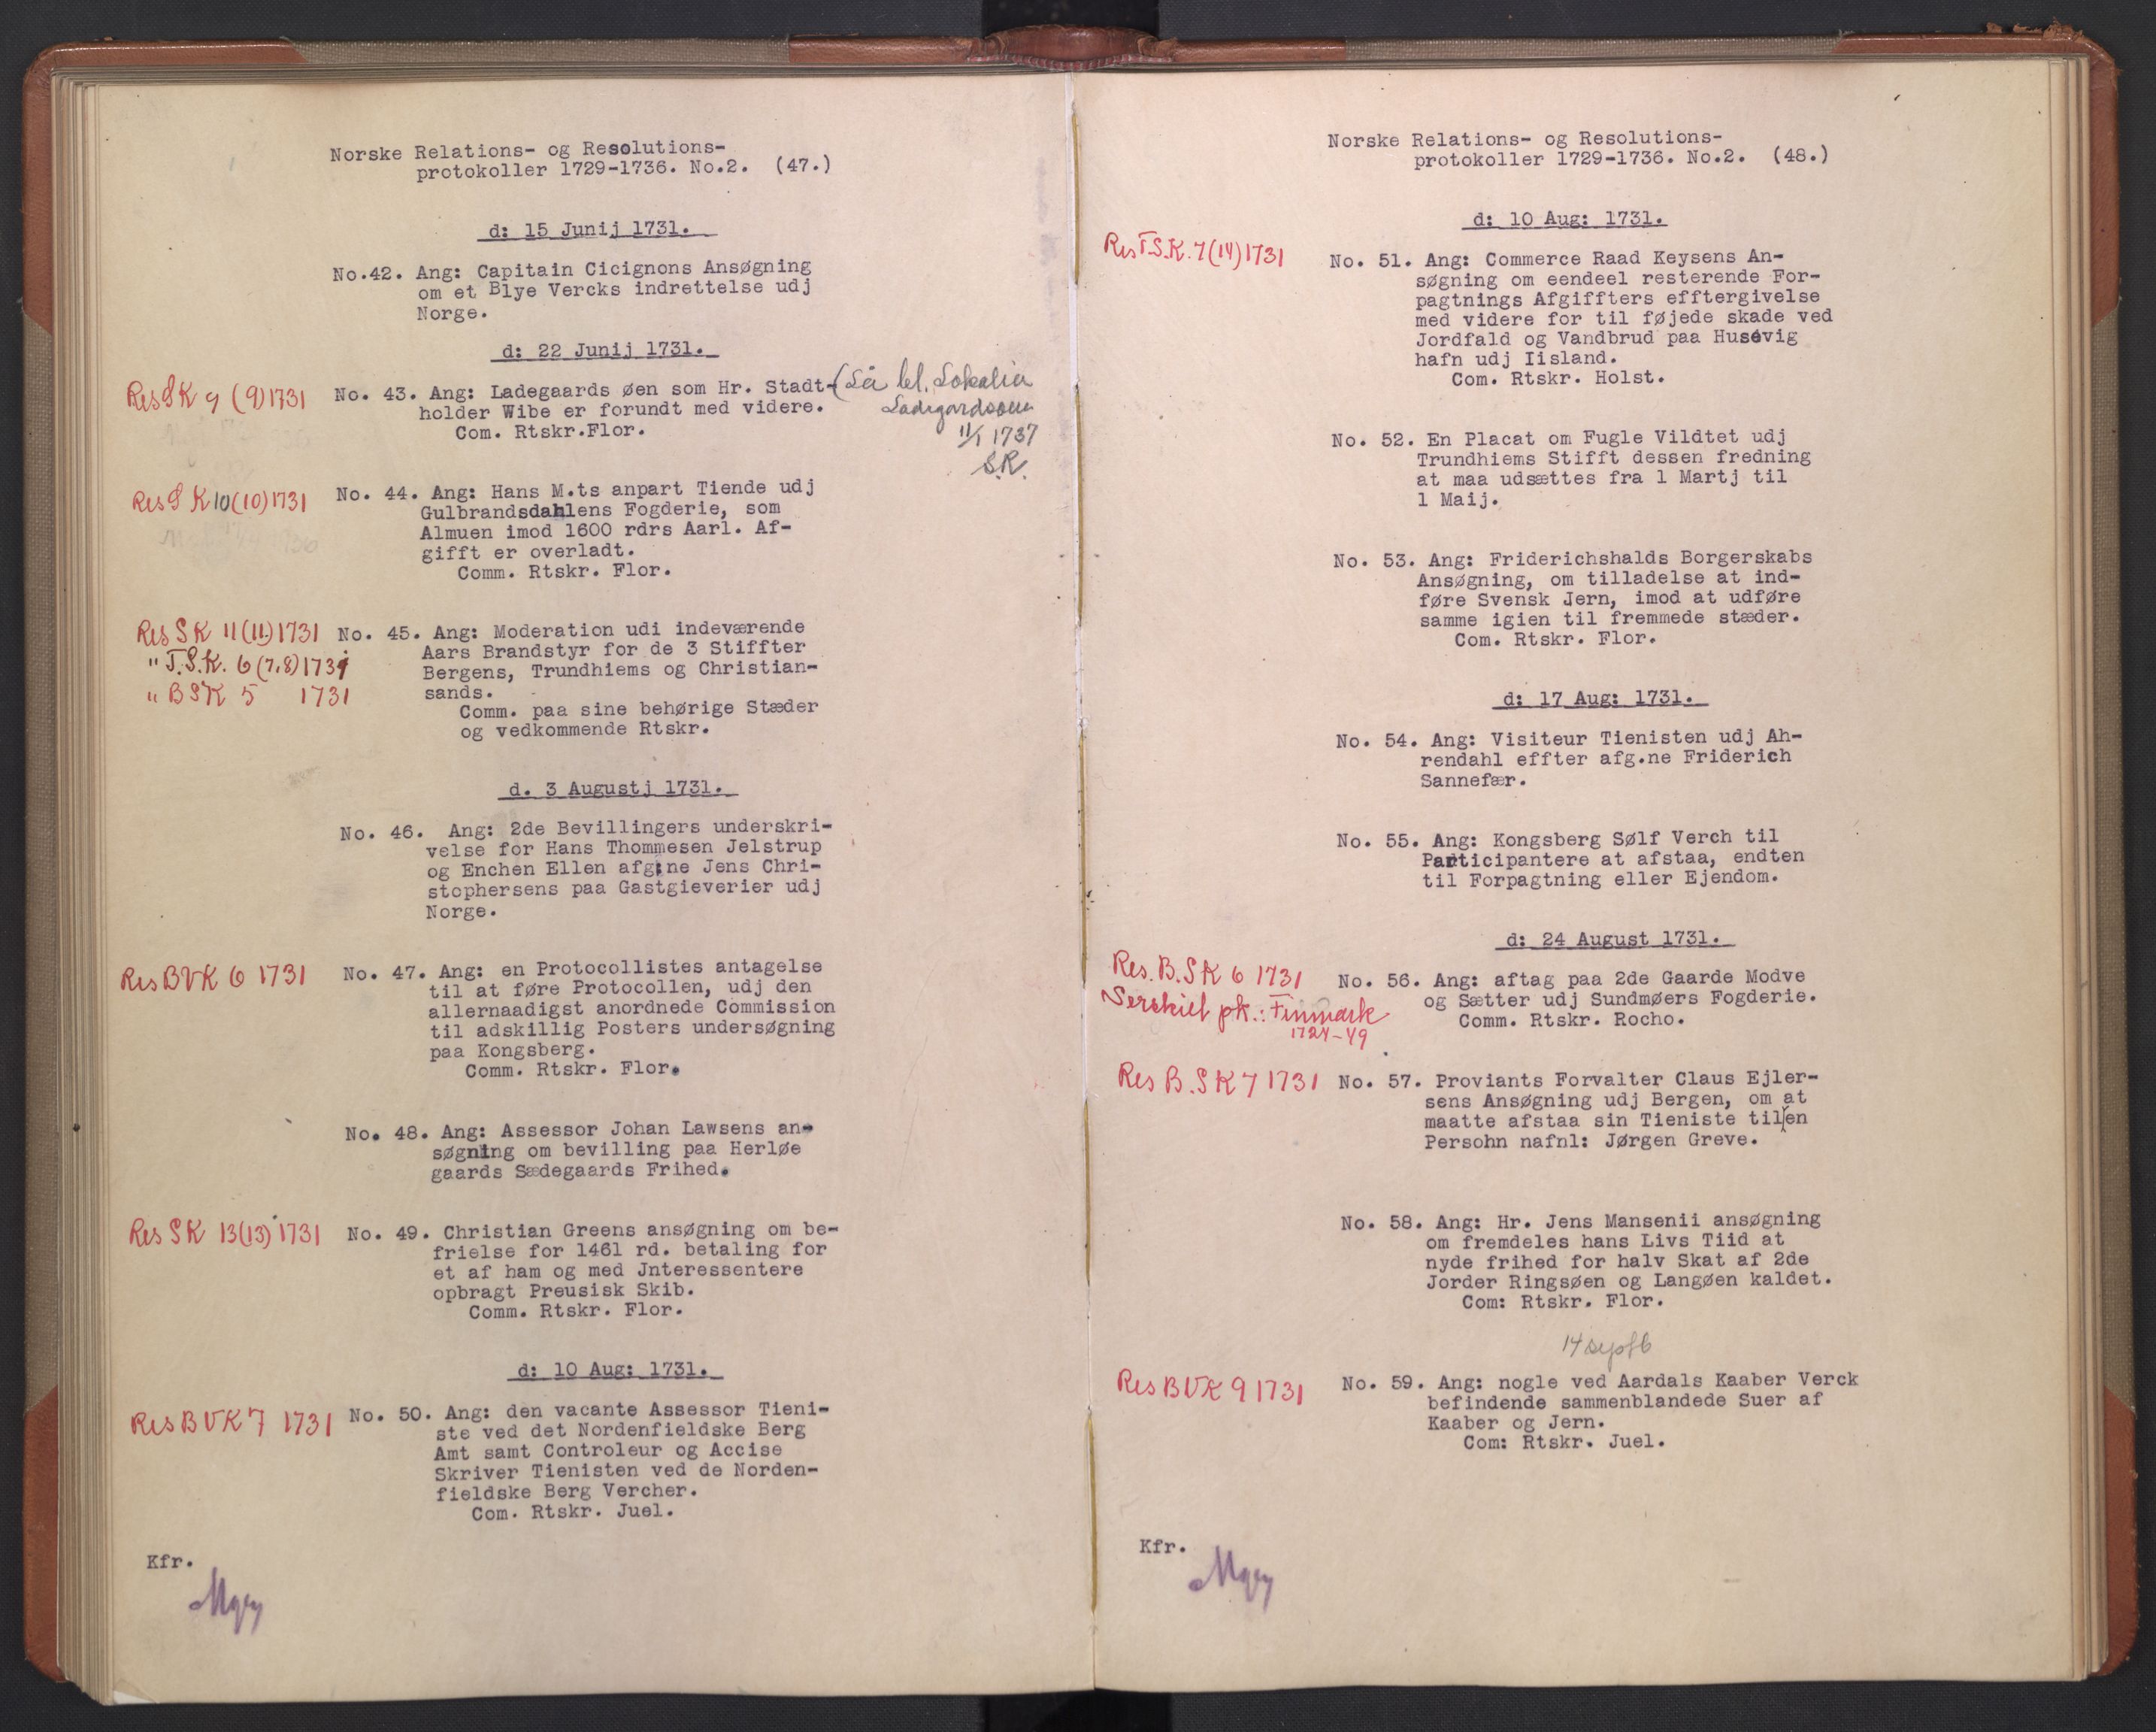 Norske Relations- og Resolutions-
protokoller 1729-1736. No.2. (47.)
d: 15 Junij 1731.
No.42. Ang: Capitain Cicignons Ansøgning
om et Blye Vercks indrettelse udj
Norge.
d: 22 Junij 1731.
Res S K 9 (9) 1731
No. 43. Ang: Ladegaards øen som Hr. Stadt-
holder Wibe er forundt med videre.
Com. Rtskr.Flor.
Lokalia
Ladegardsøen
11/1 1737
S.K.
Res S K 10 (10) 1731
No. 44. Ang: Hans M.ts anpart Tiende udj
Gulbrandsdahlens Fogderie, som
Almuen imod 1600 rdrs Aarl. Af-
gifft er overladt.
Comm. Rtskr. Flor.
Res S K 11 (11) 1731
" T.S.K. 6 (7,8) 1731
" B S K 5 1731
No. 45. Ang: Moderation udi indeværende
Aars Brandstyr for de 3 Stiffter
Bergens, Trundhiems og Christian-
sands.
Comm. paa sine behørige Stæder
og vedkommende Rtskr.
d. 3 Augustj 1731.
No. 46. Ang: 2de Bevillingers underskri-
velse for Hans Thommesen Jelstrup
og Enchen Ellen afg:ne Jens Chri-
stophersens paa Gastgieverier udj
Norge.
Res B V K 6 1731
No. 47. Ang: en Protocollistes antagelse
til at føre Protocollen, udj den
allernaadigst anordnede Commission
til adskillig Posters undersøgning
paa Kongsberg.
Comm. Rtskr. Flor.
No. 48. Ang: Assessor Johan Lawsens an-
søgning om bevilling paa Herløe
gaards Sædegaards Frihed.
Res S K 13 (13) 1731
No. 49. Christian Greens ansøgning om be-
frielse for 1461 rd. betaling for
et af ham og med Jnteressentere
opbragt Preusisk Skib.
Comm. Rtskr. Flor.
d: 10 Aug: 1731.
Res B V K 7 1731
No. 50. Ang: den vacante Assessor Tieni-
ste ved det Nordenfieldske Berg
Amt samt Controleur og Accise
Skriver Tienisten ved de Norden-
fieldske Berg Vercher.
Com. Rtskr. Juel.
Kfr.
Norske Relations- og Resolutions-
protokoller 1729-1736. No.2. (48.)
d: 10 Aug: 1731.
Res T.S.K. 7 (14) 1731
No. 51. Ang: Commerce Raad Keysens An-
søgning om eendeel resterende For-
pagtnings Afgiffters efftergivelse
med videre for til føjede skade ved
Jordfald og Vandbrud paa Husevig
hafn udj Iisland.
Com. Rtskr. Holst.
No. 52. En Placat om Fugle Vildtet udj
Trundhiems Stifft dessen fredning
at maa udsættes fra 1 Martj til
1 Maij.
No. 53. Ang: Friderichshalds Borgerskabs
Ansøgning, om tilladelse at ind-
føre Svensk Jern, imod at udføre
samme igien til fremmede stæder.
Com. Rtskr. Flor.
d: 17 Aug: 1731.
No. 54. Ang: Visiteur Tienisten udj Ah-
rendahl effter afg.ne Friderich
Sannefær.
No. 55. Ang: Kongsberg Sølf Verch til
Participantere at afstaa, endten
til Forpagtning eller Ejendom.
d: 24 August 1731.
Res. B. S K 6 1731
Serskilt pk.: Finmark
1724-49
No. 56. Ang: aftag paa 2de Gaarde Modve
og Sætter udj Sundmøers Fogderie.
Comm. Rtskr. Rocho.
Res B. S K 7 1731
No. 57. Proviants Forvalter Claus Ejler-
sens Ansøgning udj Bergen, om at
maatte afstaa sin Tieniste til en
Persohn nafnl: Jørgen Greve.
No. 58. Ang: Hr. Jens Mansenii ansøgning
om fremdeles hans Livs Tiid at
nyde frihed for halv Skat af 2de
Jorder Ringsøen og Langøen kaldet.
Com: Rtskr. Flor.
14 septb
Res B V K 9 1731
No. 59. Ang: nogle ved Aardals Kaaber Verck
befindende sammenblandede Suer af
Kaaber og Jern.
Com: Rtskr. Juel.
Kfr.